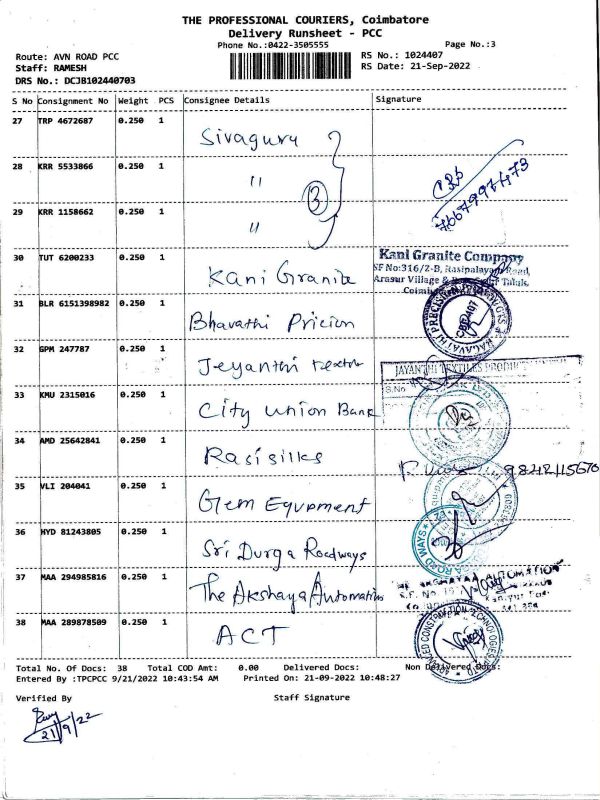 THE PROFESSIONAL COURIERS, Coimbatore
Delivery Runsheet - PCC
Phone No.:0422-3505555 Page No.:3
Route: AVN ROAD PCC RS No.: 1024407
Staff: RAMESH RS Date: 21-Sep-2022
DRS No.: DCJB102440703
S No Consignment No Weight PCS Consignee Details Signature
27 TRP 4672687 0.250 1 Sivaguru
28 KRR 5533866 0.250 1 "
3
29 KRR 1158662 0.250 1 "
30 TUT 6200233 0.250 1 Kani Granite
Kani Granite Company
SF No:316/2-B, Rasipalayam Road,
Arasur Village & Taluk,
31 BLR 6151398982 0.250 1 Bharathi Pricion
32 GPM 247787 0.250 1 Jeyanthi
JAYANTHI TEXTILES PRODUCT
S.No
33 KMU 2315016 0.250 1 City Union Bank
34 AMD 25642841 0.250 1 Rasi silks
35 VLI 204041 0.250 1 Gem Equpment
36 HYD 81243805 0.250 1 Sri Durga Roadways
ROAD WAYS
37 MAA 294985816 0.250 1 The Akshaya Automation
AUTOMATION
38 MAA 289878509 0.250 1 ACT
ADVANCED CONSTRUCTION TECHNOLOGIES
Total No. Of Docs: 38 Total COD Amt: 0.00 Delivered Docs: Non Delivered Docs:
Entered By :TPCPCC 9/21/2022 10:43:54 AM Printed On: 21-09-2022 10:48:27
Verified By Staff Signature
21/9/22